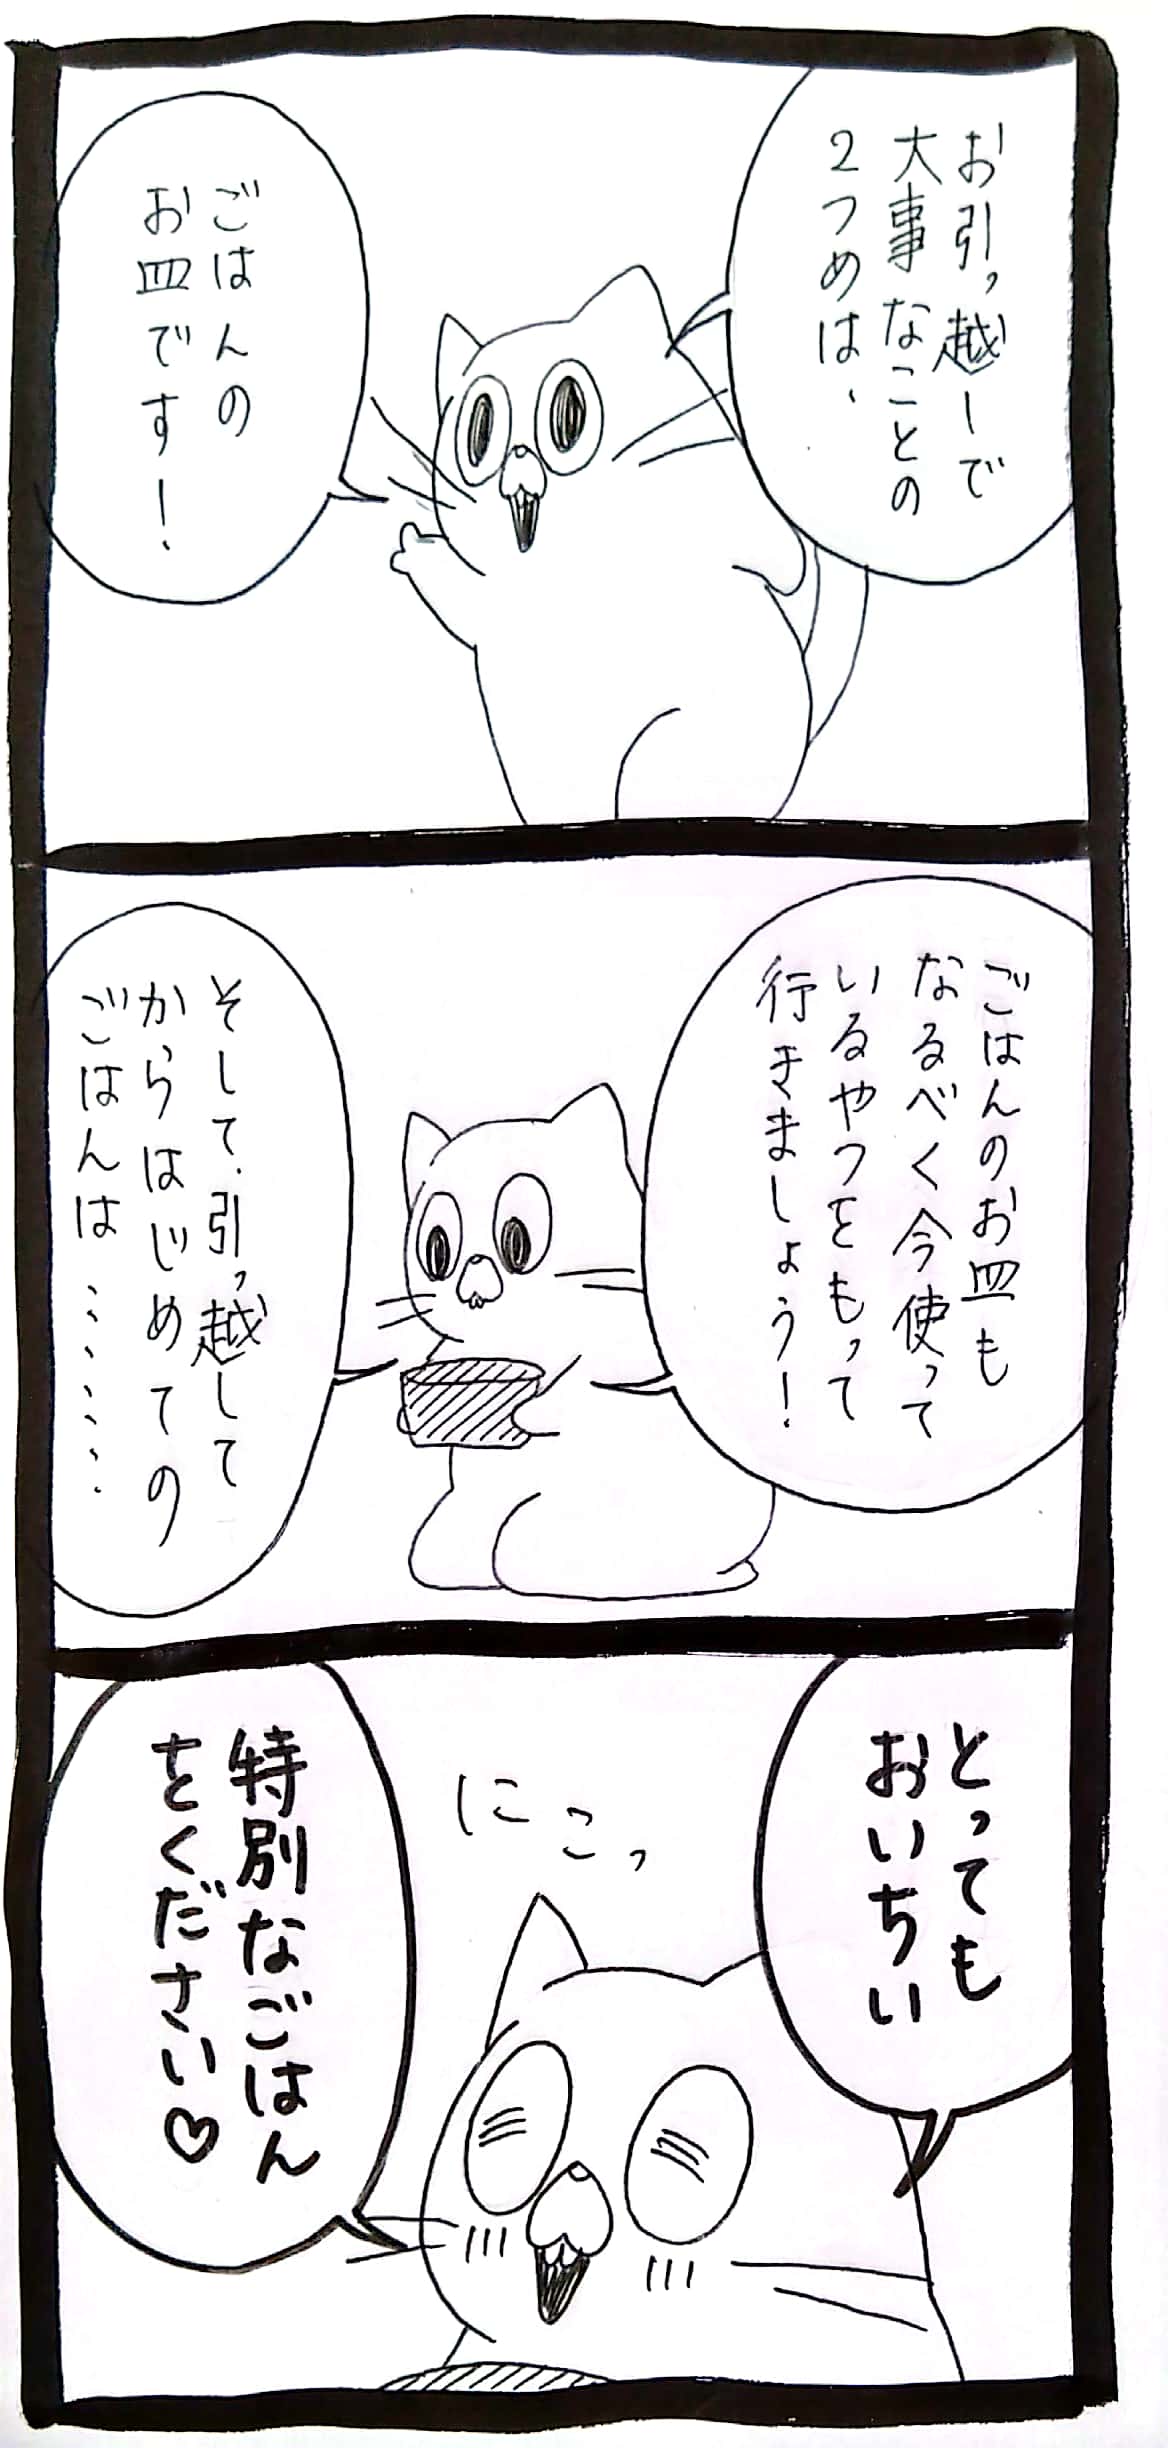 お引っ越しで
大事なことの
2つめは、
ごはんの
お皿です!
ごはんのお皿も
なるべく今使って
いるやつをもって
行きましょう!
そして、引っ越して
からはじめての
ごはんは……
とっても
おいちい
にこっ
特別なごはん
をください♡